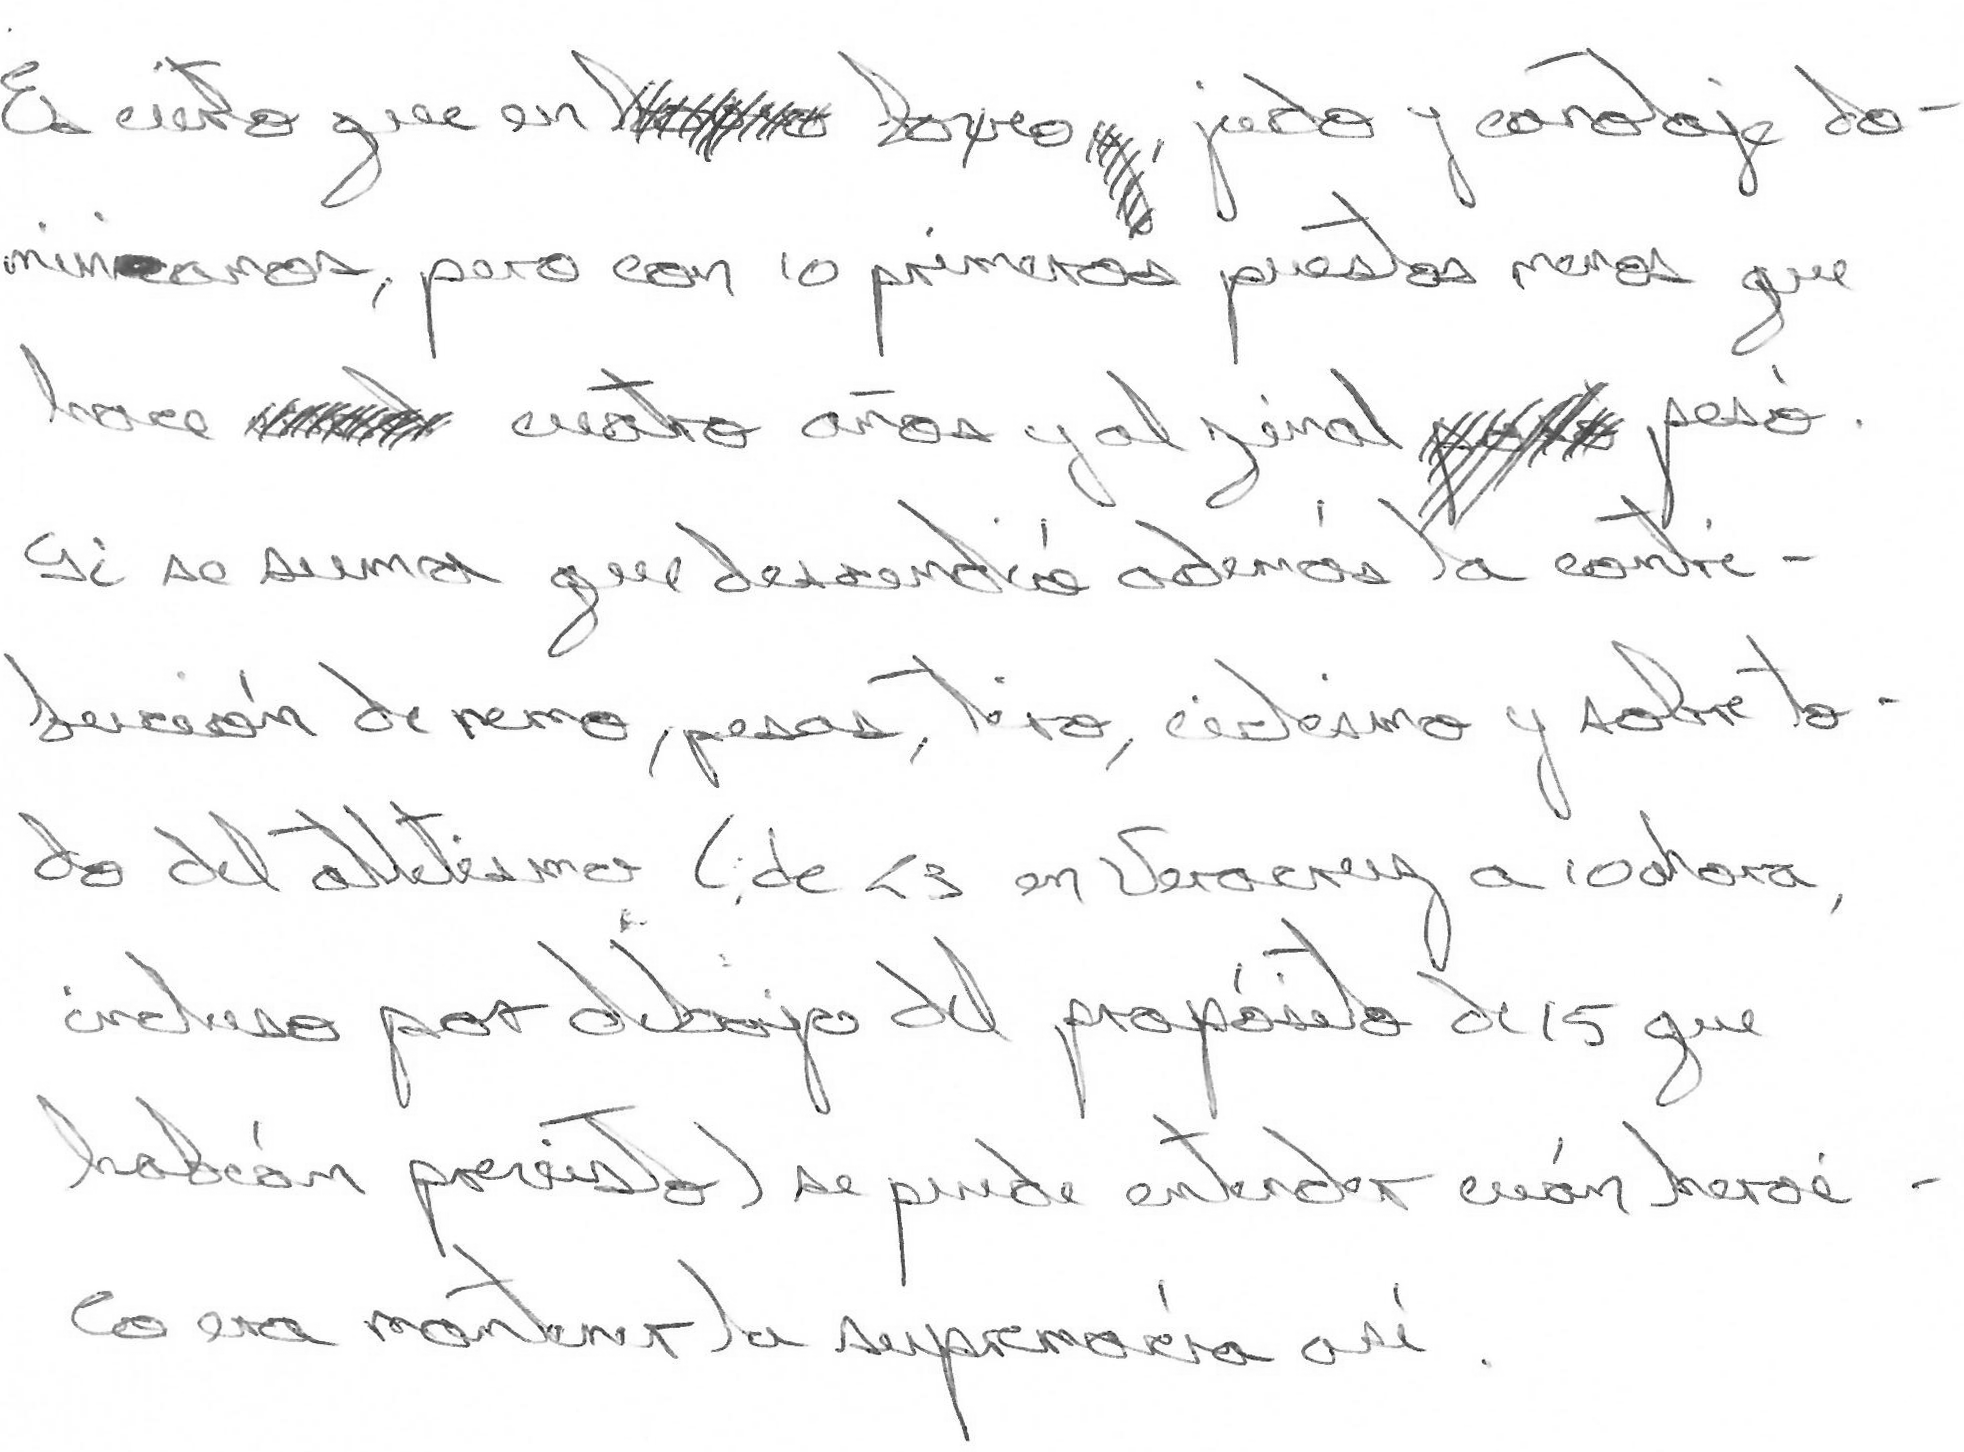 Es cierto que en boxeo, judo y canotaje do-
minicanos, pero con 10 primeros puestos menos que
hace cuatro años y al final pesó.
Si se suma que descendió además la contri-
bución de remo, pesas, tiro, ciclismo y sobre to-
do del atletismo (de 23 en Veracruz a 10 ahora,
incluso por debajo del propósito de 15 que
habían previsto) se puede entender cuán heroi-
co era mantener la supremacía así.